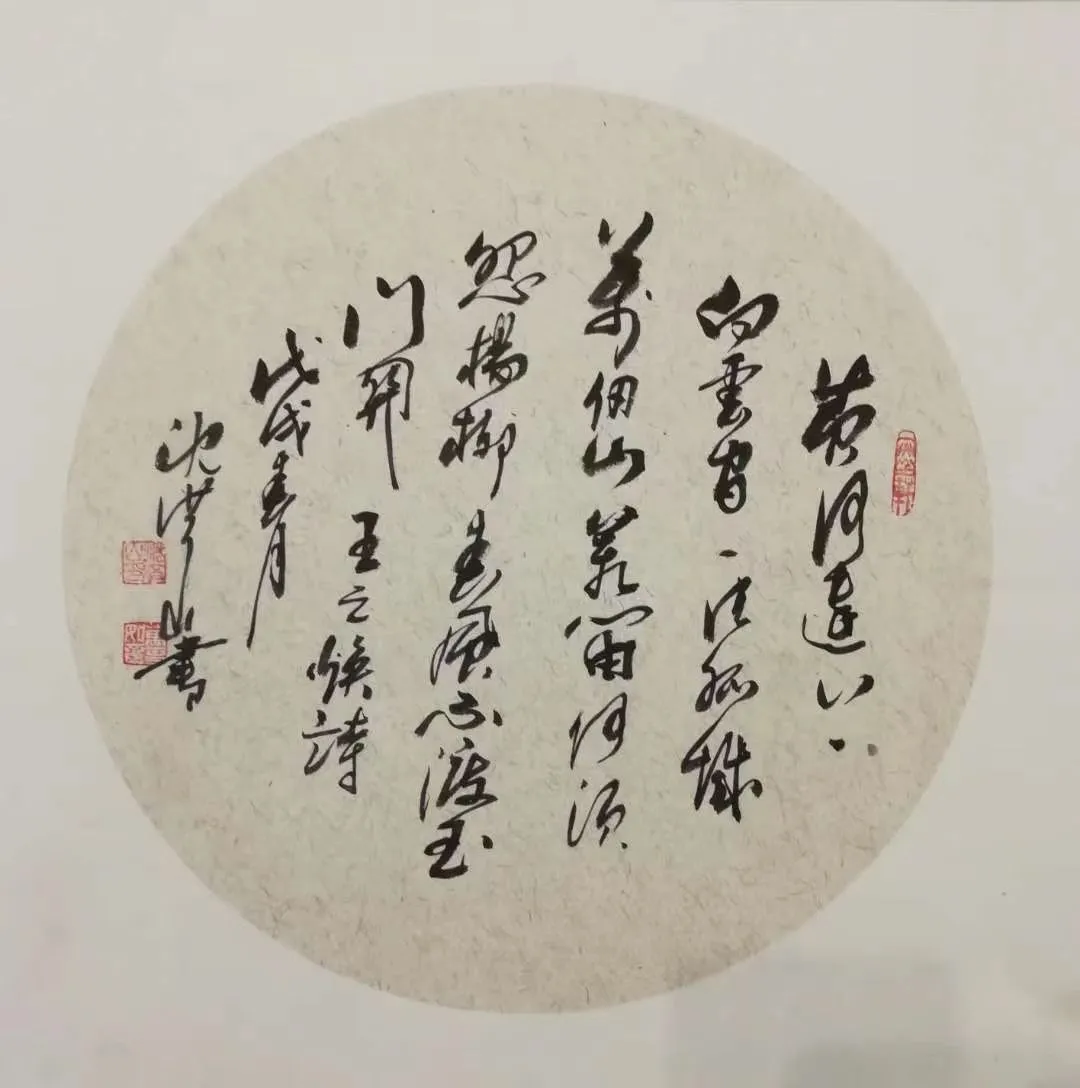 黄河遠上
白雲間一片孤城
萬仞山羌笛何須
怨楊柳春風不渡玉
門關 王之焕詩
戊戌春月
沈洪山書